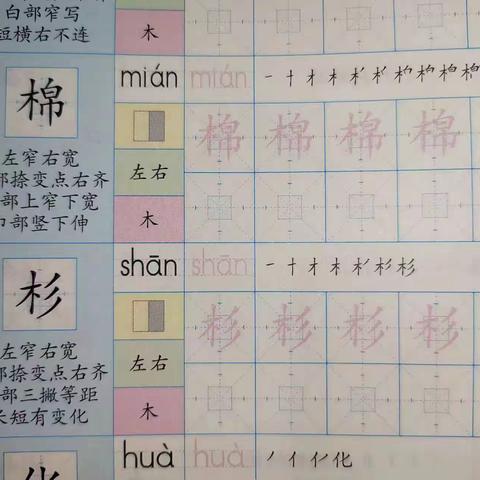 白部窄写
短横右不连
木
棉
mián mián
一 十 才 木
左窄右宽
部捺变点右齐
部上窄下宽
巾部竖下伸
左右
木
棉 棉 棉 棉
杉
shān shān
一 十 才 木 杉 杉
左窄右宽
部捺变点右齐
部三撇等距
长短有变化
左右
木
杉 杉 杉 杉
化
huà huà
丿 亻 化